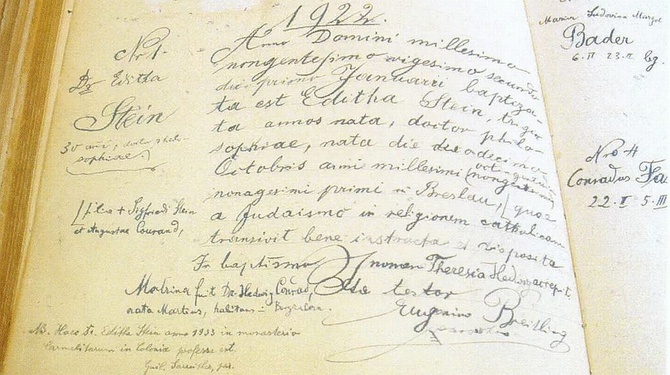 1922.
No 1.
Dr Editha
Stein
30 ann.,
sophiae.
filia + Sigfriedi Stein
et Augustae Courand,
Anno Domini millesimo
nongentesimo vigesimo secundo
die primo Januarii baptiza-
ta est Editha Stein, trigin-
ta annos nata, doctor philo-
sophiae, nata die duodecimo
Octobris anni millesimi octingentesimi
nonagesimi primi in Breslau, quae
a Judaismo in religionem catholicam
transivit bene instructa et disposita
In baptismo nomen Theresia Hedwig accepit
Matrina fuit Dr. Hedwig Conrad,
nata Martius, habitans in Bergzabern.
Ita testor
Eugenius Breitling
NB. Haec Dr. Editha Stein anno 1933 in monasterio
Carmelitarum in Colonia professa est.
Maria Ludovica Marg.
Bader
6. II 23. II bg.
Nro 4
Conradus
22. I 5. III